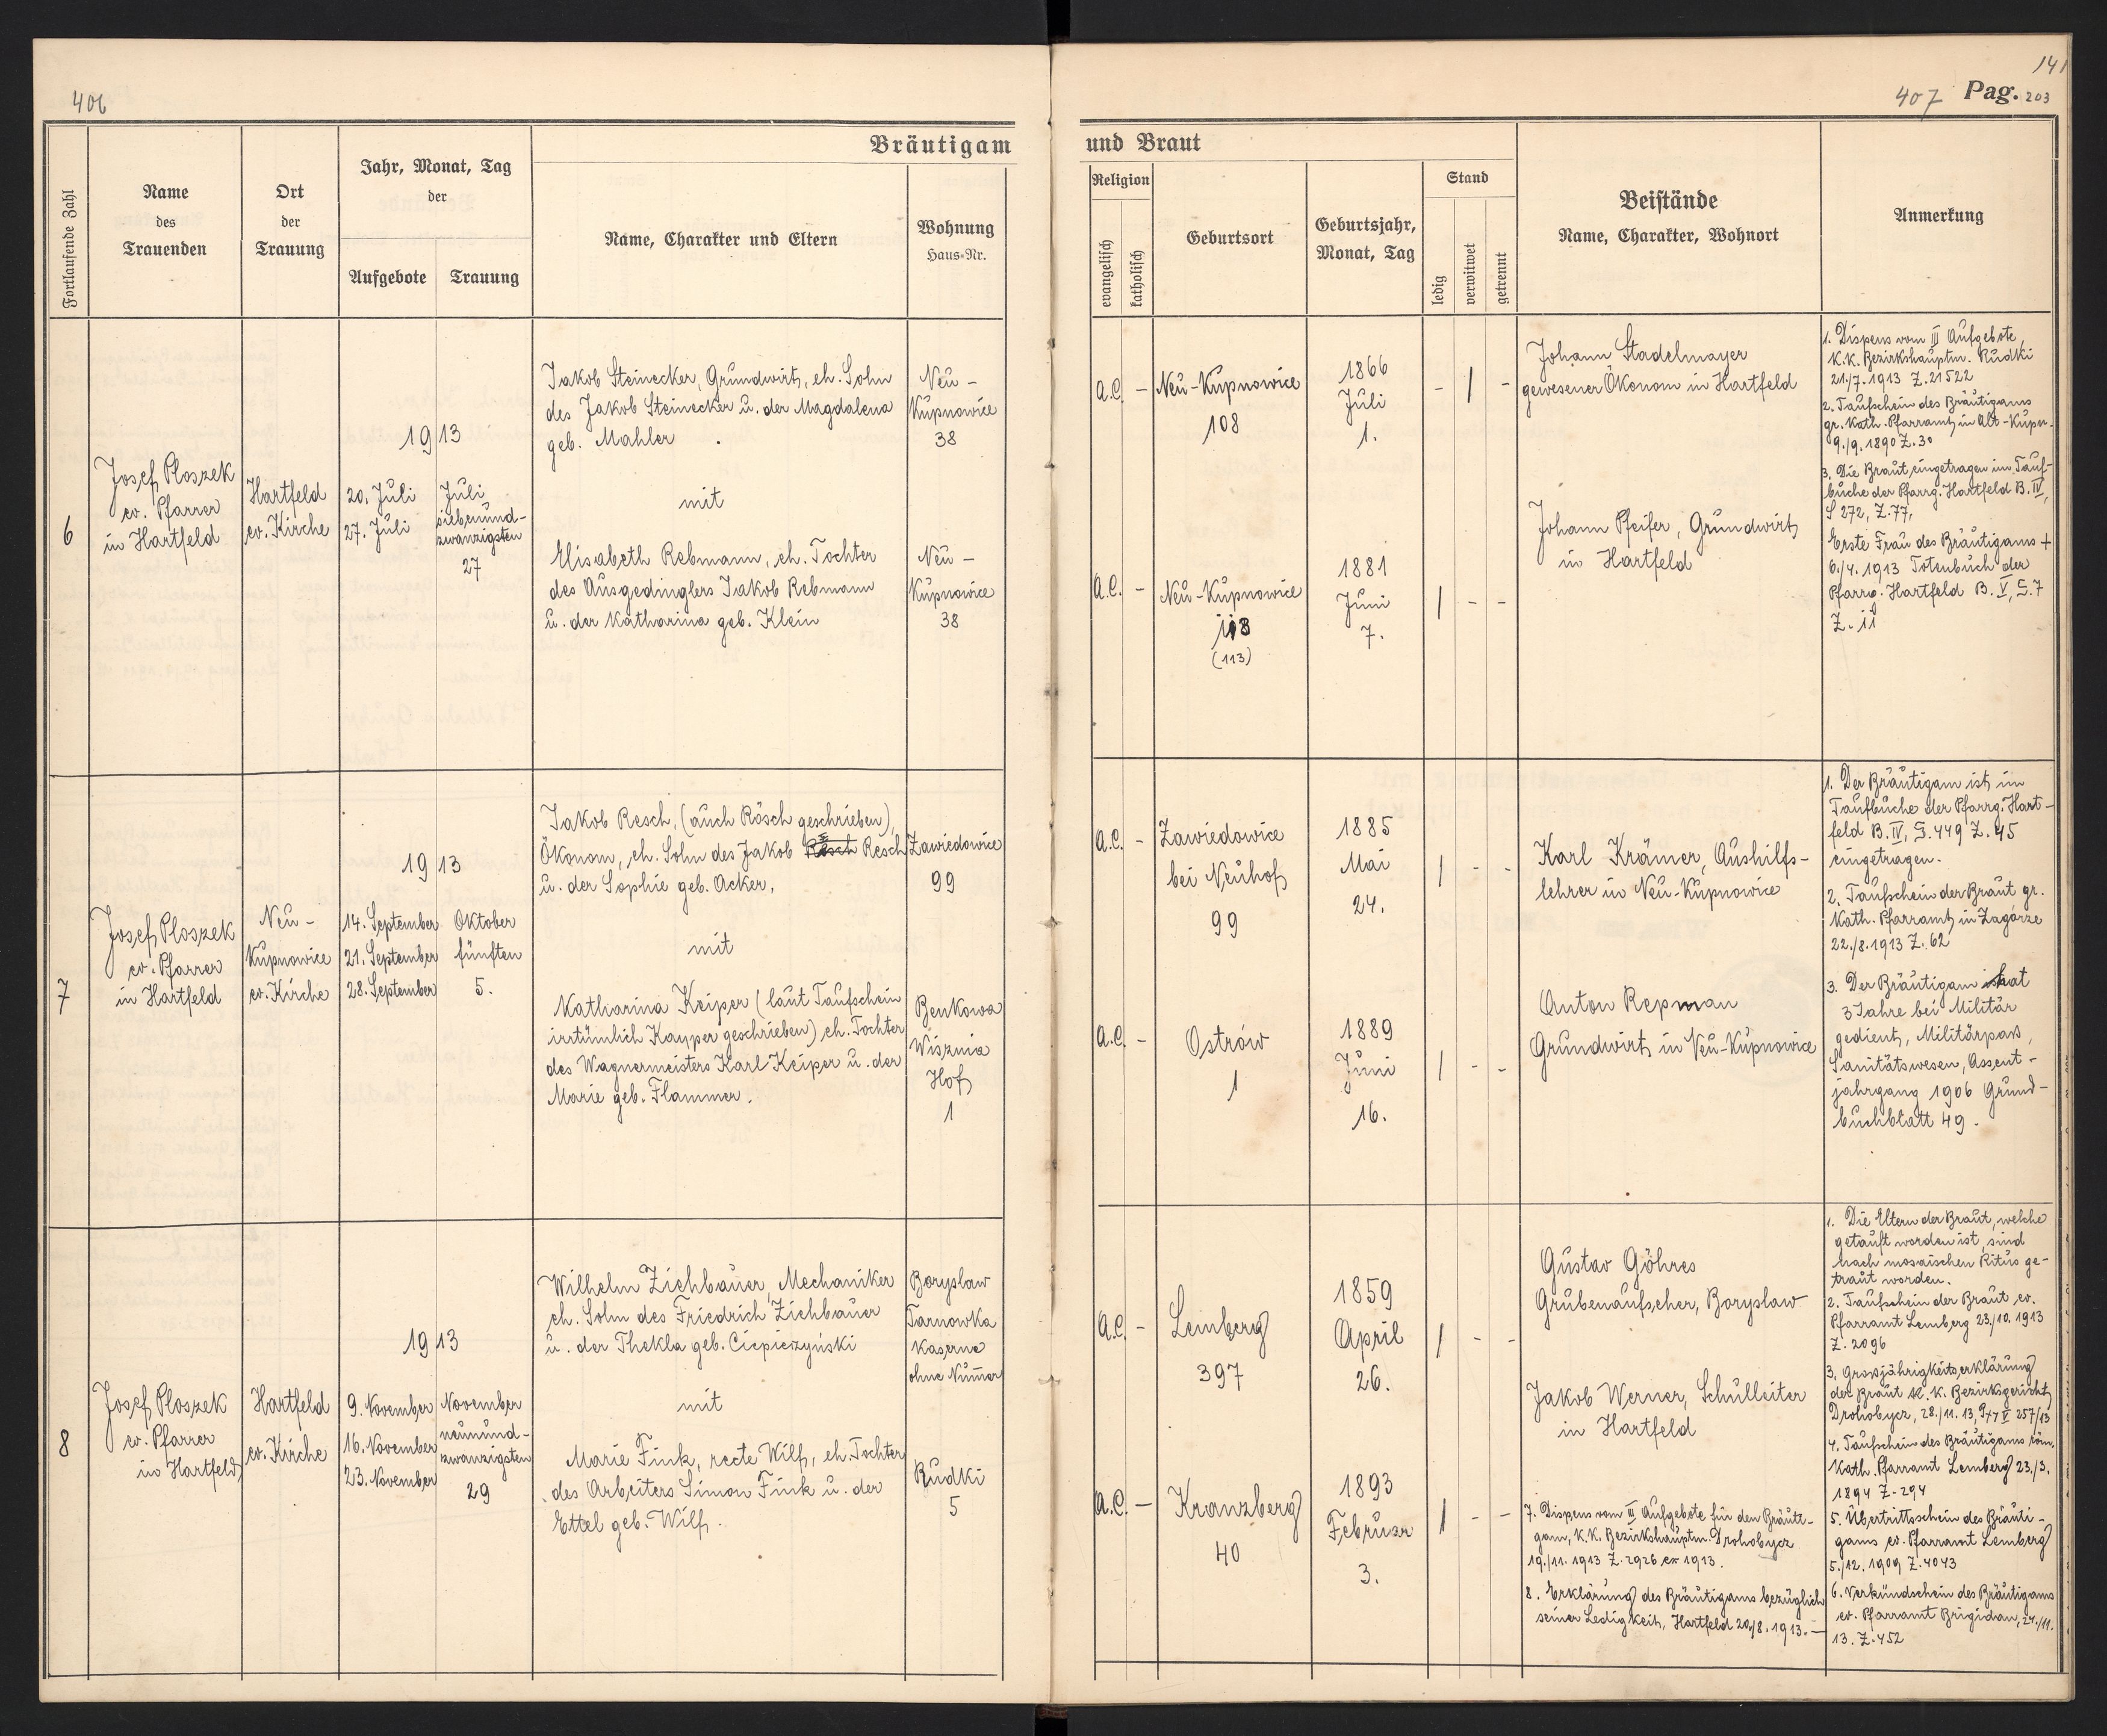 406
141
407 Pag. 203
Bräutigam und Braut
Fortlaufende Zahl
Name
des
Trauenden
Ort
der
Trauung
Jahr, Monat, Tag
der
Aufgebote
Trauung
Name, Charakter und Eltern
Wohnung
Haus=Nr.
Religion
evangelisch
katholisch
Geburtsort
Geburtsjahr,
Monat, Tag
Stand
ledig
verwitwet
getrennt
Beistände
Name, Charakter, Wohnort
Anmerkung
6
Josef Ploszek
ev. Pfarrer
in Hartfeld
Hartfeld
ev. Kirche
1913
20. Juli
27. Juli
Juli
siebenund-
zwanzigsten
27
Jakob Steinecker, Grundwirt, eh. Sohn
des Jakob Steinecker u. der Magdalena
geb. Mahler.
mit
Elisabeth Rebmann, eh. Tochter
des Ausgedinglers Jakob Rebmann
u. der Katharina geb. Klein
Neu-
Kupnowice
38
Neu-
Kupnowice
38
A.C. -
Neu-Kupnowice
108
1866
Juli
1.
- 1 -
A.C. -
Neu-Kupnowice
113
(113)
1881
Juni
7.
1 - -
Johann Stadelmayer
gewesener Ökonom in Hartfeld
Johann Pfeifer, Grundwirt
in Hartfeld
1. Dispens vom III Aufgebote,
K.K. Bezirkshauptm. Rudki
21./7. 1913 Z. 21522
2. Taufschein des Bräutigams
gr. Kath. Pfarramt in Alt-Kupn.
9./9. 1890 Z. 30
3. Die Braut eingetragen im Tauf-
buche der Pfarrg. Hartfeld B. IV,
S 272, Z. 77,
Erste Frau des Bräutigams +
6./4. 1913 Totenbuch der
Pfarrg. Hartfeld B. V, S. 7
Z. 11
7
Josef Ploszek
ev. Pfarrer
in Hartfeld
Neu-
Kupnowice
ev. Kirche
1913
14. September
21. September
28. September
Oktober
fünften
5.
Jakob Resch, (auch Rösch geschrieben),
Ökonom, eh. Sohn des Jakob Resch
u. der Sophie geb. Acker,
mit
Katharina Keiper (laut Taufschein
irrtümlich Kayper geschrieben) eh. Tochter
des Wagnermeisters Karl Keiper u. der
Marie geb. Flammer.
Zawiedowice
99
Benkowa
Wisznia
Hof
1
A.C. -
Zawiedowice
bei Neuhof
99
1885
Mai
24.
1 - -
A.C. -
Ostrów
1
1889
Juni
16.
1 - -
Karl Krämer, Aushilfs-
lehrer in Neu-Kupnowice
Anton Repman
Grundwirt in Neu-Kupnowice
1. Der Bräutigam ist im
Taufbuche der Pfarrg. Hart-
feld B. IV, S. 449 Z. 45
eingetragen.
2. Taufschein der Braut gr.
Kath. Pfarramt in Zagórze
22./8. 1913 Z. 62
3. Der Bräutigam hat
3 Jahre bei Militär
gedient, Militärpass,
Sanitätswesen, Assent-
jahrgang 1906 Grund-
buchblatt 49.
8
Josef Ploszek
ev. Pfarrer
in Hartfeld
Hartfeld
ev. Kirche
1913
9. November
16. November
23. November
November
neunund-
zwanzigsten
29
Wilhelm Ziehbauer, Mechaniker
eh. Sohn des Friedrich Ziehbauer
u. der Thekla geb. Ciepiczyński
mit
Marie Fink, recte Wilf, eh. Tochter
des Arbeiters Simon Fink u. der
Ettel geb. Wilf.
Boryslaw
Tarnowka
Kaserne
ohne Num̅er
Rudki
5
A.C. -
Lemberg
397
1859
April
26.
1 - -
A.C. -
Kranzberg
40
1893
Februar
3.
1 - -
Gustav Göhres
Grubenaufseher, Boryslaw
Jakob Werner, Schulleiter
in Hartfeld
7. Dispens vom III Aufgebote für den Bräuti-
gam, K.K. Bezirkshauptm. Drohobycz
19./11. 1913 Z. 2926 ex 1913.
8. Erklärung des Bräutigams bezüglich
seiner Ledigkeit, Hartfeld 20./8. 1913.-
1. Die Eltern der Braut, welche
getauft worden ist, sind
nach mosaischen Ritus ge-
traut worden.
2. Taufschein der Braut ev.
Pfarramt Lemberg 23./10. 1913
Z. 2096
3. Grossjährigkeitserklärung
der Braut K.K. Bezirksgericht
Drohobycz, 28./11. 13, 257/13
4. Taufschein des Bräutigams röm.
Kath. Pfarramt Lemberg 23./3.
1894 Z. 294
5. Übertrittsschein des Bräuti-
gams ev. Pfarramt Lemberg
5./12. 1909 Z. 4043
6. Verkündschein des Bräutigams
ev. Pfarramt Brigidau, 24./11.
13. Z. 452